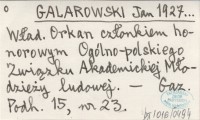 GALAROWSKI Jan 1927...
Wład. Orkan członkiem ho-
norowym Ogólno-polskiego
Związku Akademickiej Mło-
dzieży ludowej. — Gaz.
Podh. 15, nr 23.